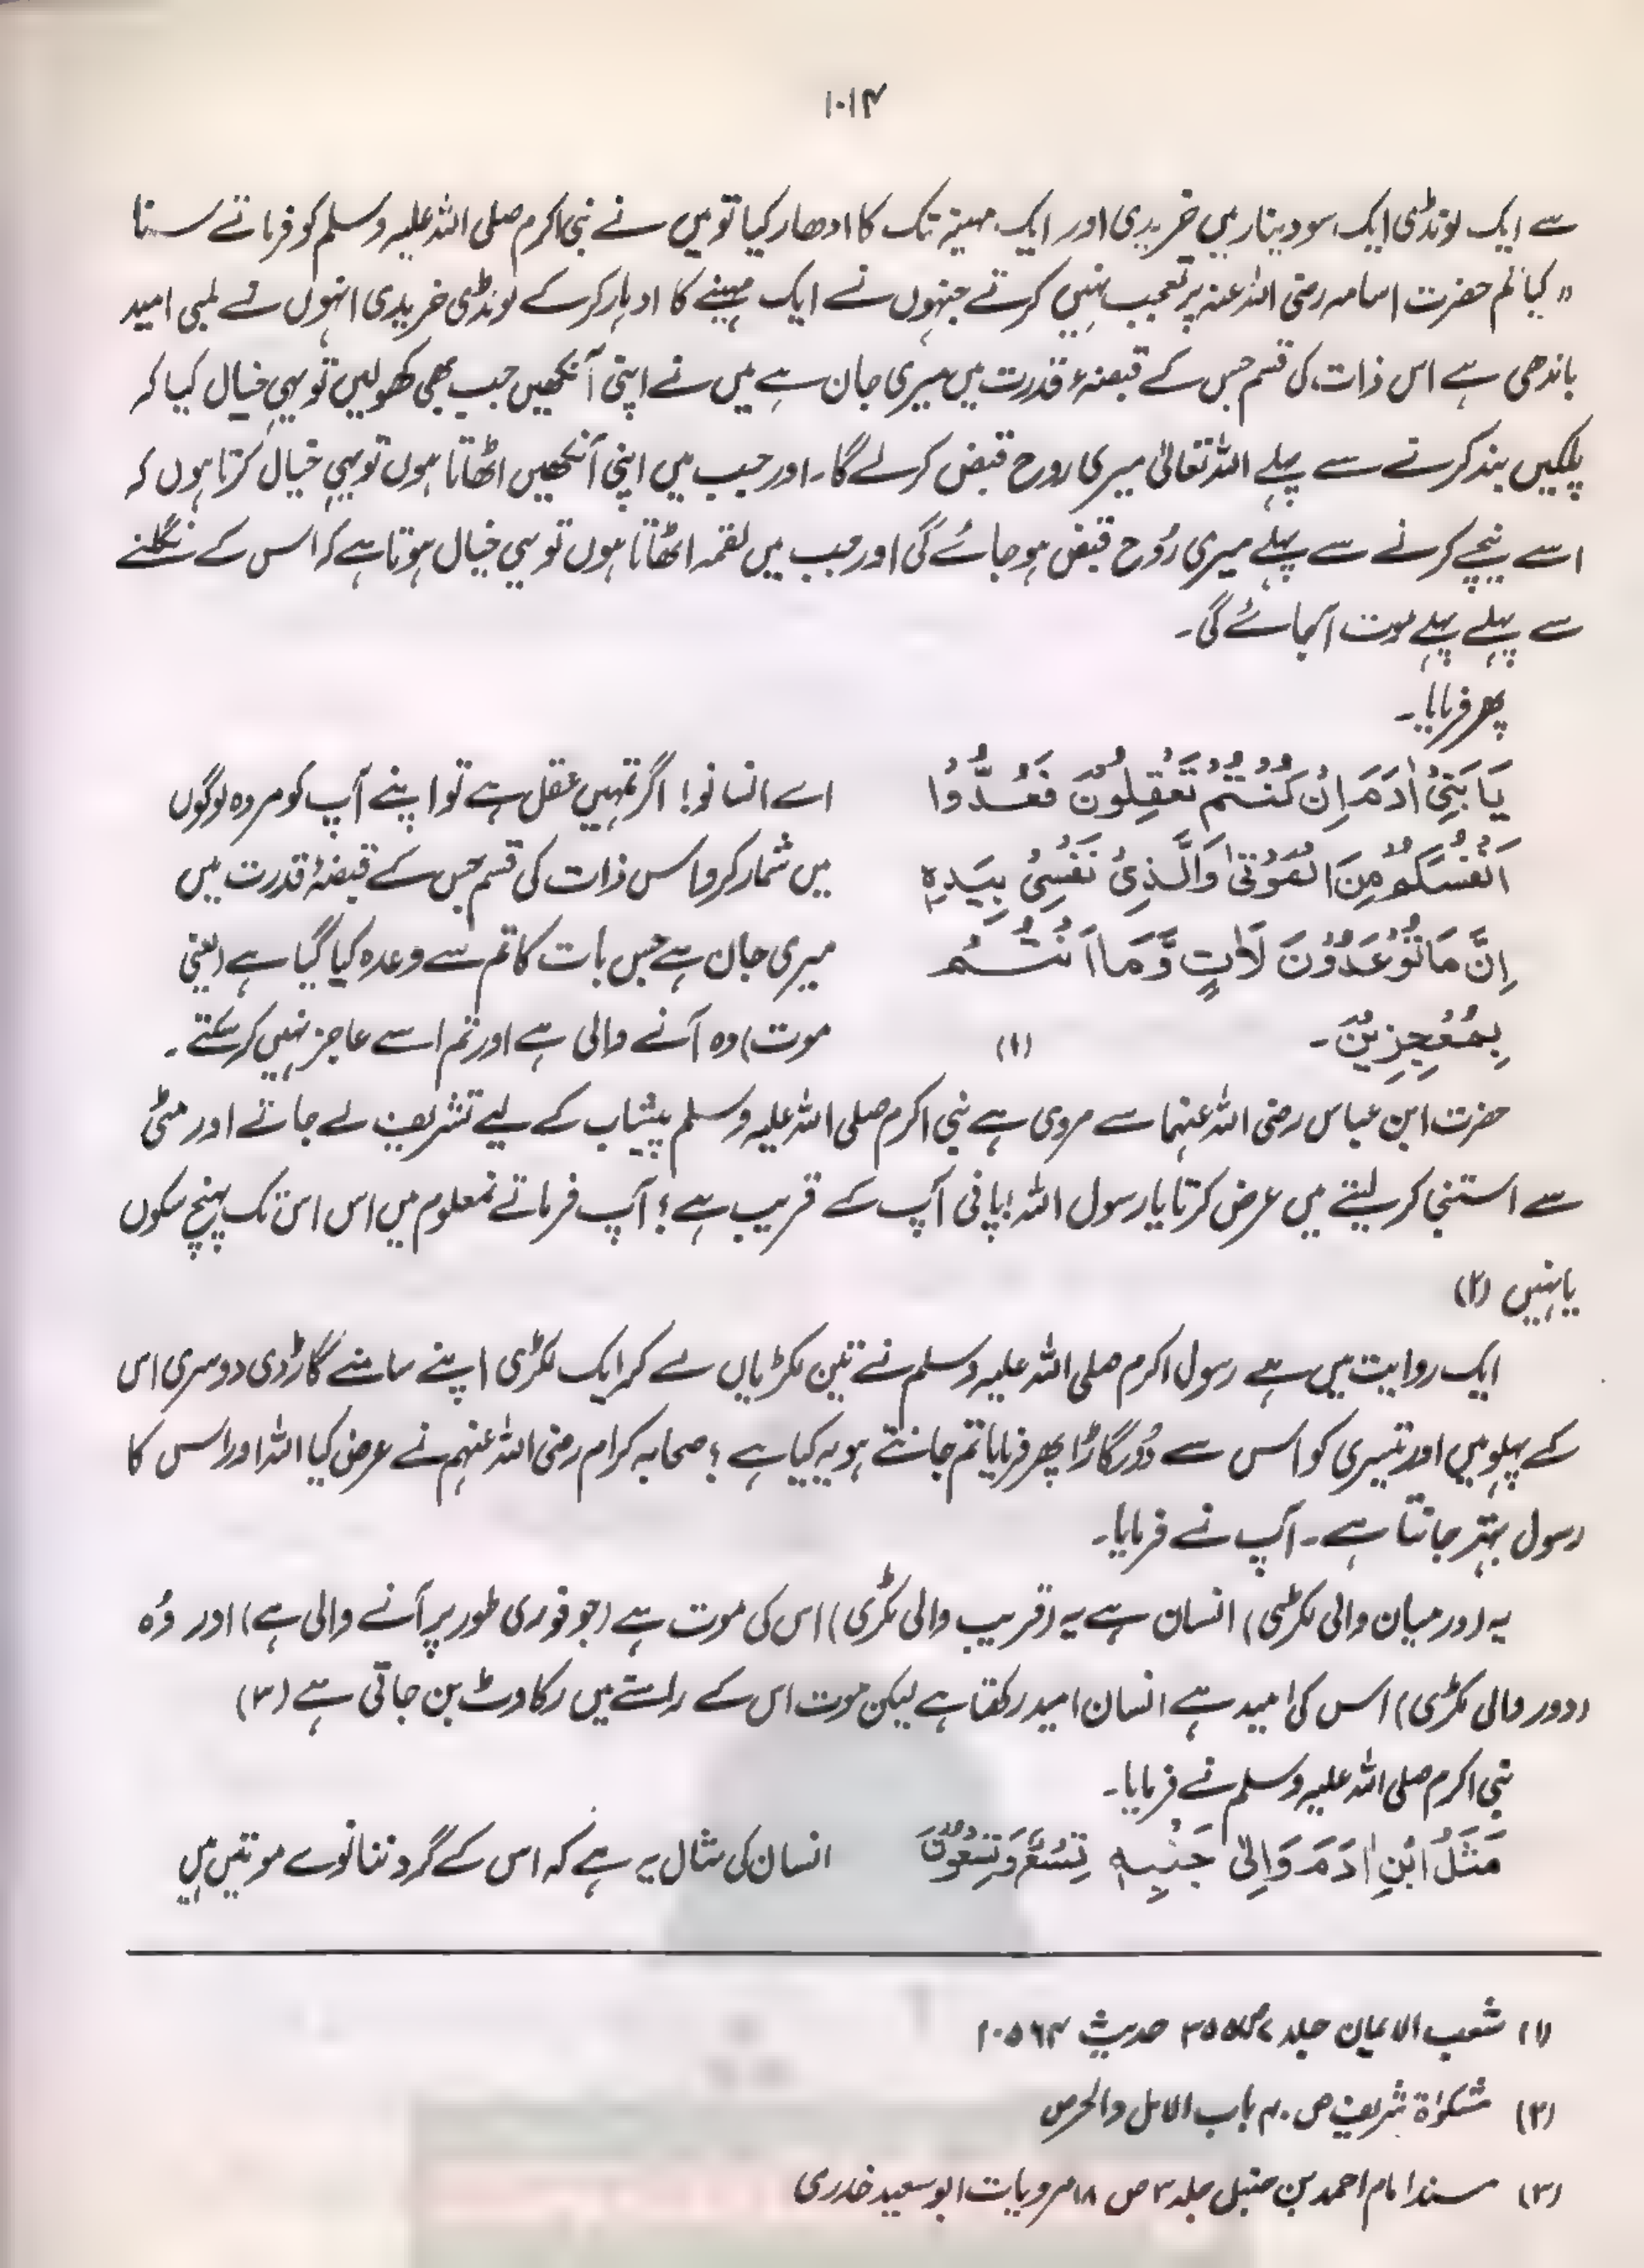 ۱۰۱۴
سے ایک لونڈی ایک سو دینار میں خریدی اور ایک مہینہ تک کا ادھار کیا تو میں نے نبی اکرم صلی اللہ علیہ وسلم کو فرماتے سنا
" کیا تم حضرت اسامہ رضی اللہ عنہ پر تعجب نہیں کرتے جنہوں نے ایک مہینے کا ادہار کرکے لونڈی خریدی انہوں نے لمبی امید
باندھی ہے اس ذات کی قسم جس کے قبضۂ قدرت میں میری جان ہے میں نے اپنی آنکھیں جب بھی کھولیں تو یہی خیال کیا کہ
پلکیں بند کرنے سے پہلے اللہ تعالیٰ میری روح قبض کرلے گا۔ اور جب میں اپنی آنکھیں اٹھاتا ہوں تو یہی خیال کرتا ہوں کہ
اسے نیچے کرنے سے پہلے میری رُوح قبض ہو جائے گی اور جب میں لقمہ اٹھاتا ہوں تو یہی خیال ہوتا ہے کہ اس کے نگلنے
سے پہلے پہلے موت آجائے گی۔
پھر فرمایا۔
یَا بَنِیْ اٰدَمَ اِنْ کُنْتُمْ تَعْقِلُوْنَ فَعُدُّوْا
اَنْفُسَکُمْ مِنَ الْمَوْتٰی وَالَّذِیْ نَفْسِیْ بِیَدِہٖ
اِنَّ مَا تُوْعَدُوْنَ لَاٰتٍ وَّمَا اَنْتُمْ
بِمُعْجِزِیْنَ۔ (۱)
اے انسانو! اگر تمہیں عقل ہے تو اپنے آپ کو مردہ لوگوں
میں شمار کرو اس ذات کی قسم جس کے قبضۂ قدرت میں
میری جان ہے جس بات کا تم سے وعدہ کیا گیا ہے (یعنی
موت) وہ آنے والی ہے اور تم اسے عاجز نہیں کر سکتے۔
حضرت ابن عباس رضی اللہ عنہما سے مروی ہے نبی اکرم صلی اللہ علیہ وسلم پیشاب کے لیے تشریف لے جاتے اور مٹی
سے استنجا کر لیتے میں عرض کرتا یا رسول اللہ! پانی آپ کے قریب ہے؛ آپ فرماتے نمعلوم میں اس اس تک پہنچ سکوں
یا نہیں (۲)
ایک روایت میں ہے رسول اکرم صلی اللہ علیہ وسلم نے تین لکڑیاں لے کر ایک لکڑی اپنے سامنے گاڑ دی دوسری اس
کے پہلو میں اور تیسری کو اس سے دُور گاڑا پھر فرمایا تم جانتے ہو یہ کیا ہے؟ صحابہ کرام رضی اللہ عنہم نے عرض کیا اللہ اور اس کا
رسول بہتر جانتا ہے۔ آپ نے فرمایا۔
یہ (درمیان والی لکڑی) انسان ہے یہ (قریب والی لکڑی) اس کی موت ہے (جو فوری طور پر آنے والی ہے) اور وُہ
(دور والی لکڑی) اس کی امید ہے انسان امید رکھتا ہے لیکن موت اس کے راستے میں رکاوٹ بن جاتی ہے (۳)
نبی اکرم صلی اللہ علیہ وسلم نے فرمایا۔
مَثَلُ ابْنِ اٰدَمَ وَاِلٰی جَنْبِہٖ تِسْعٌ وَتِسْعُوْنَ
انسان کی مثال یہ ہے کہ اس کے گرد ننانوے موتیں ہیں
(۱) شعب الایمان جلد ۷ ص ۳۵۵ حدیث ۱۰۵۶۴
(۲) مشکوٰۃ شریف ص باب الامل والحرص
(۳) مسند امام احمد بن حنبل جلد ۳ ص ۱۸ مرویات ابو سعید خدری